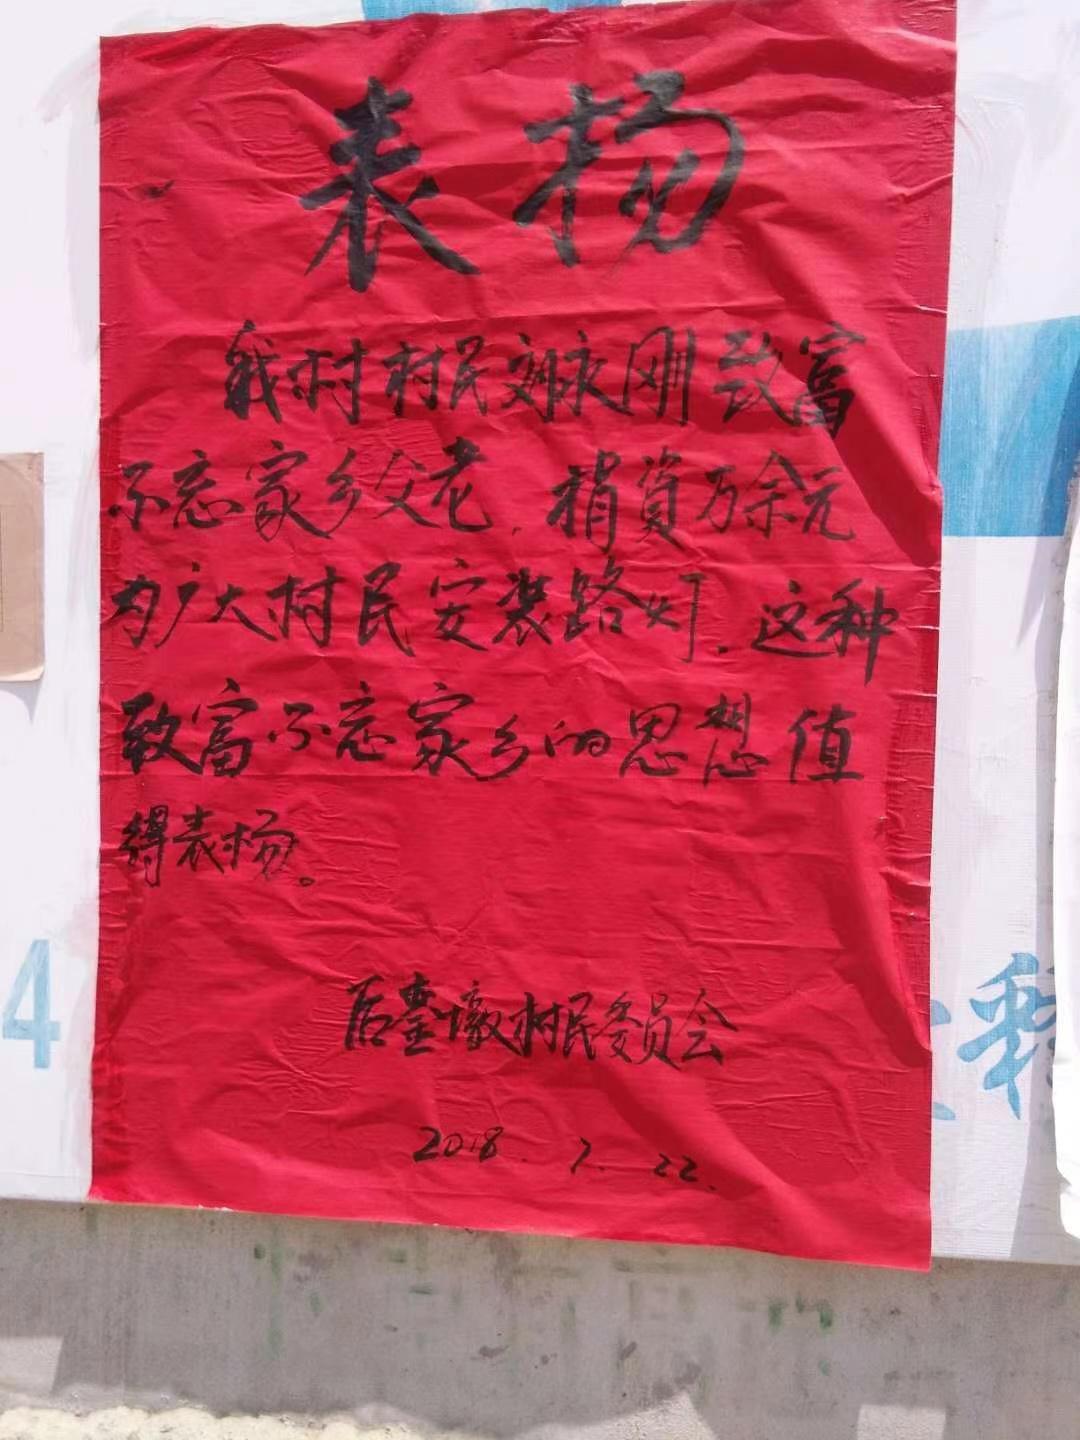 表扬
我村村民刘永刚致富
不忘家乡父老，捐资万余元
为广大村民安装路灯，这种
致富不忘家乡的思想值
得表扬。
后銮墩村民委员会
2018.7.22.
4